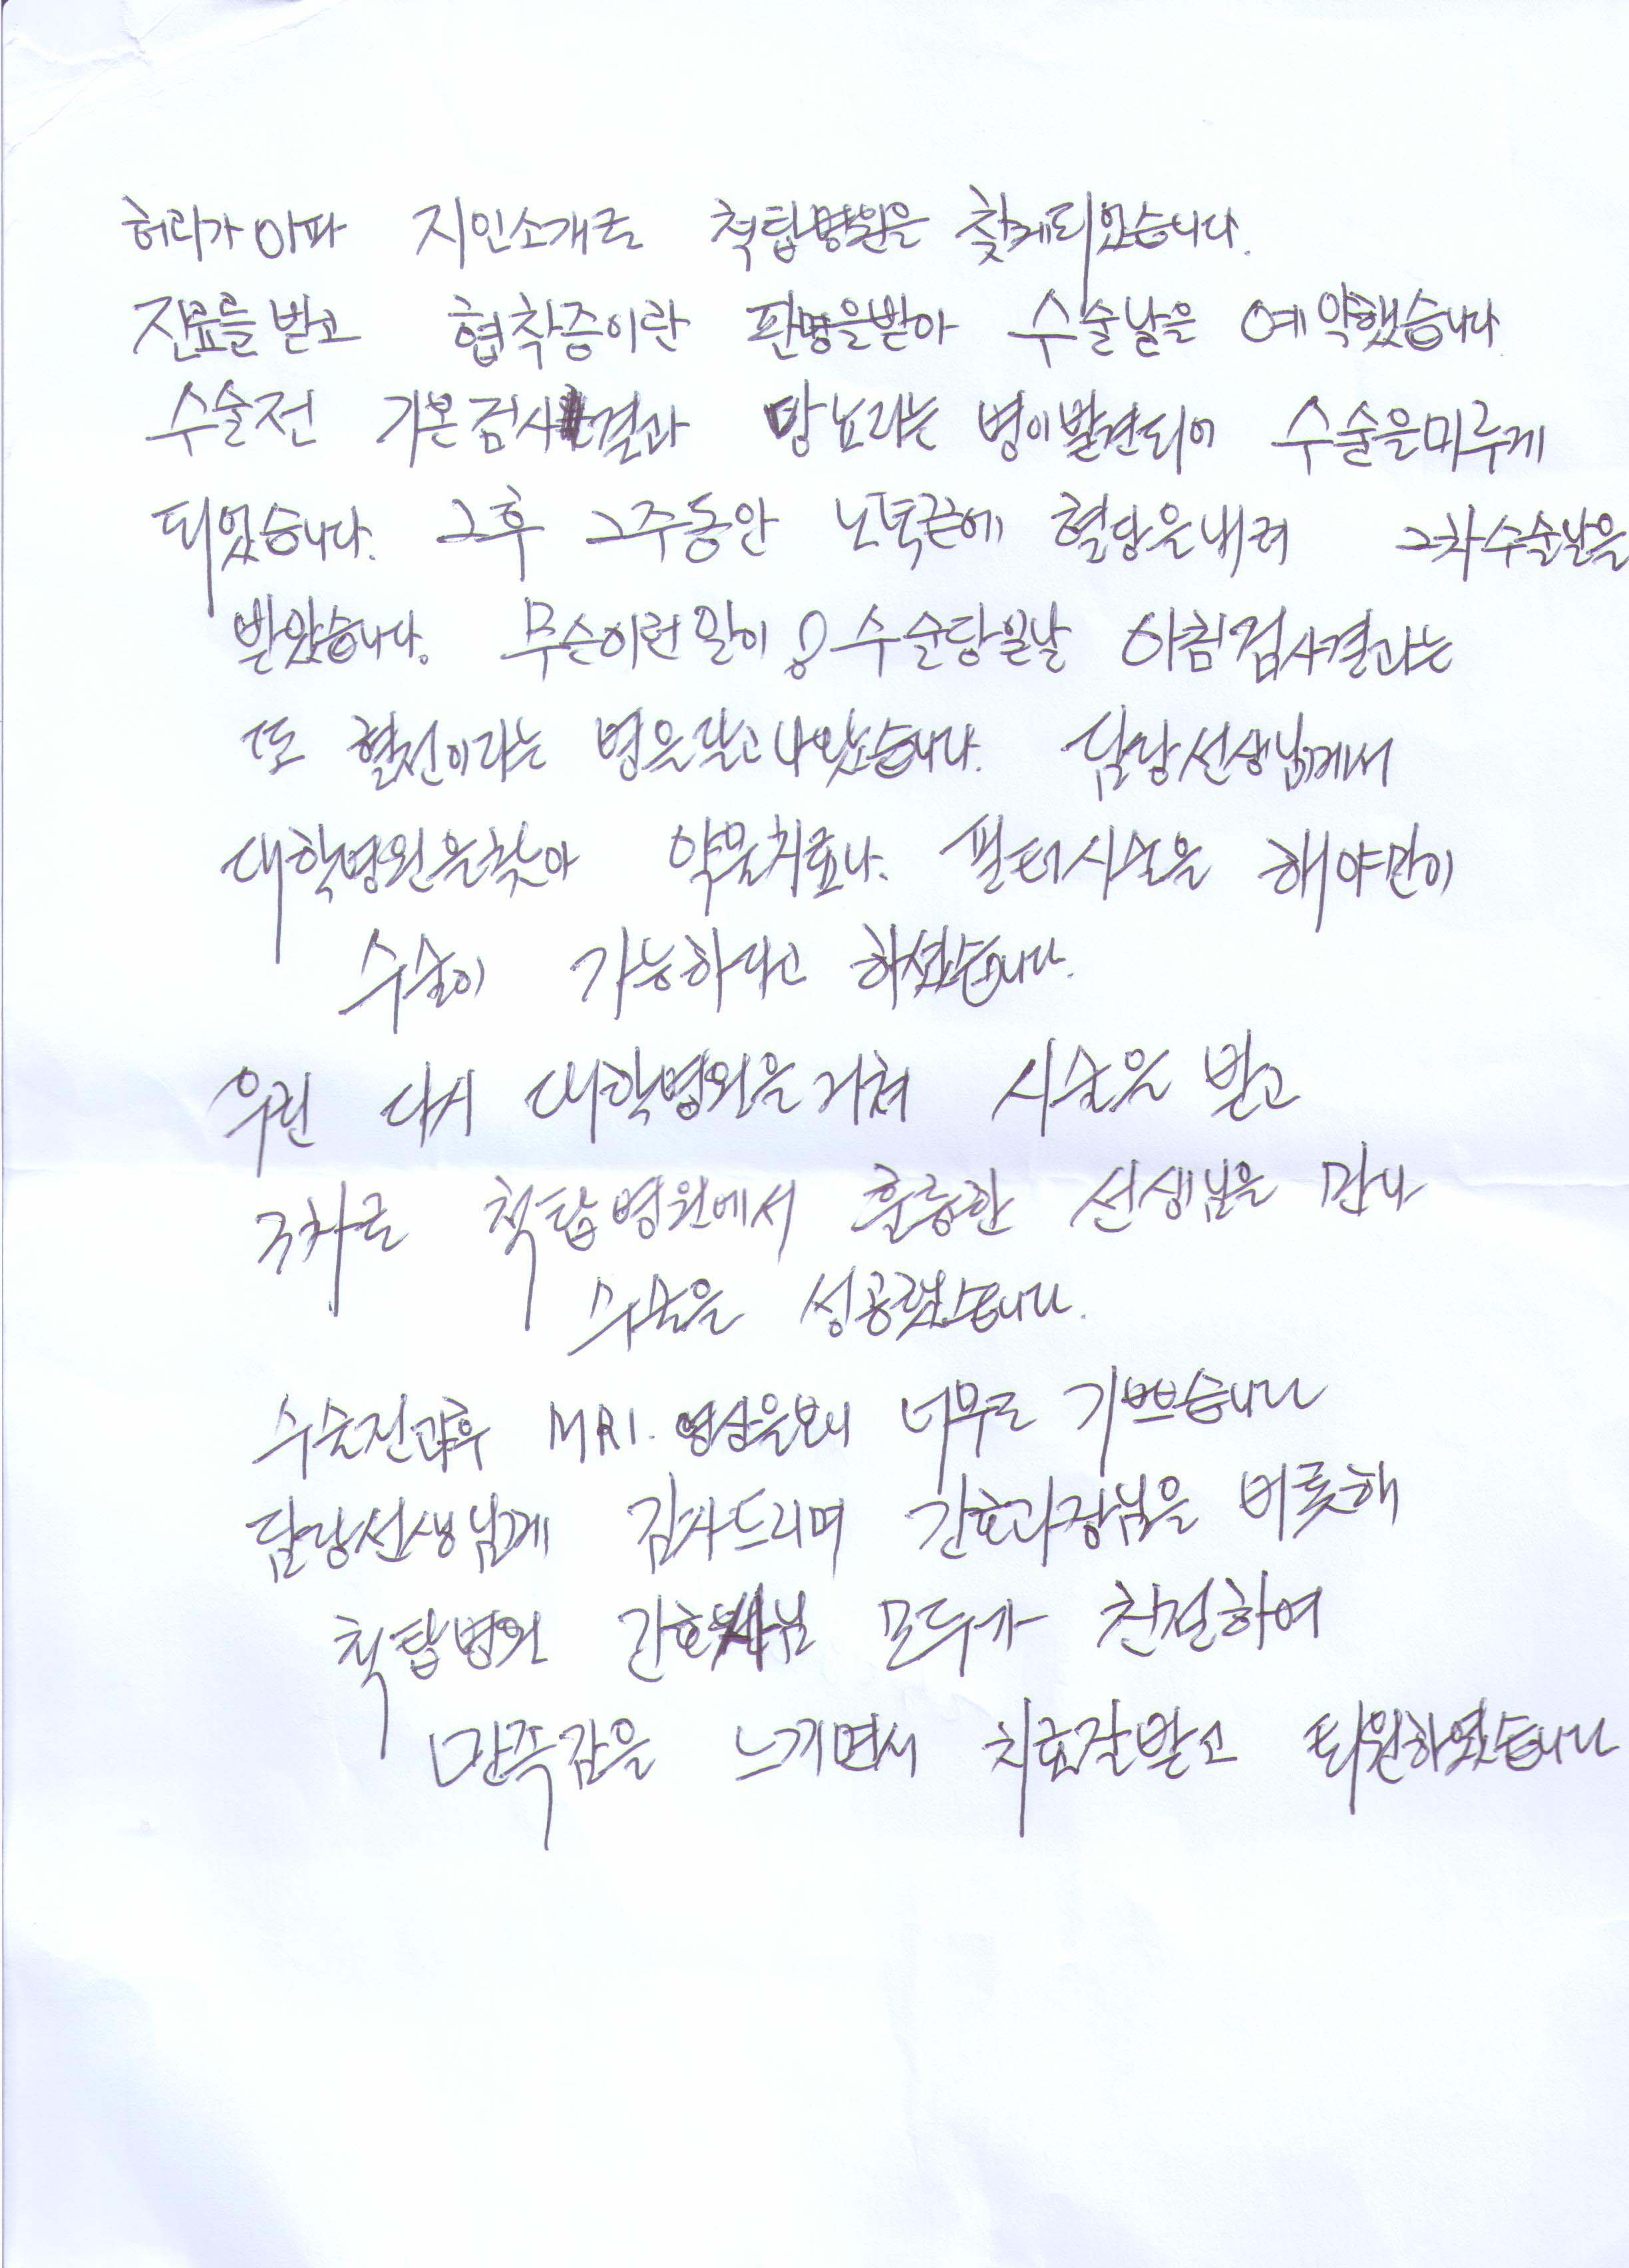 허리가 아파 지인소개로 척탑병원을 찾게되었습니다.
진료를 받고 협착증이란 판명을받아 수술날을 예약했습니다
수술전 기본검사결과 당뇨라는 병이발견되어 수술을미루게
되었습니다. 그후 2주동안 노력끝에 혈당을내려 2차수술날을
받았습니다. 무슨이런일이? 수술당일날 아침검사결과는
또 혈전이라는 병은달고나왔습니다. 담당선생님께서
대학병원을찾아 약물치료나. 필터시술을 해야만이
수술이 가능하다고 하셨습니다.
우린 다시 대학병원을거쳐 시술을 받고
3차로 척탑병원에서 훌륭한 선생님을 만나
수술을 성공했습니다.
수술전과후 MRI. 영상을보니 너무도 기쁘습니다
담당선생님께 감사드리며 간호과장님을 비롯해
척탑병원 간호사님 모두가 친절하여
만족감을 느끼면서 치료잘받고 퇴원하였습니다